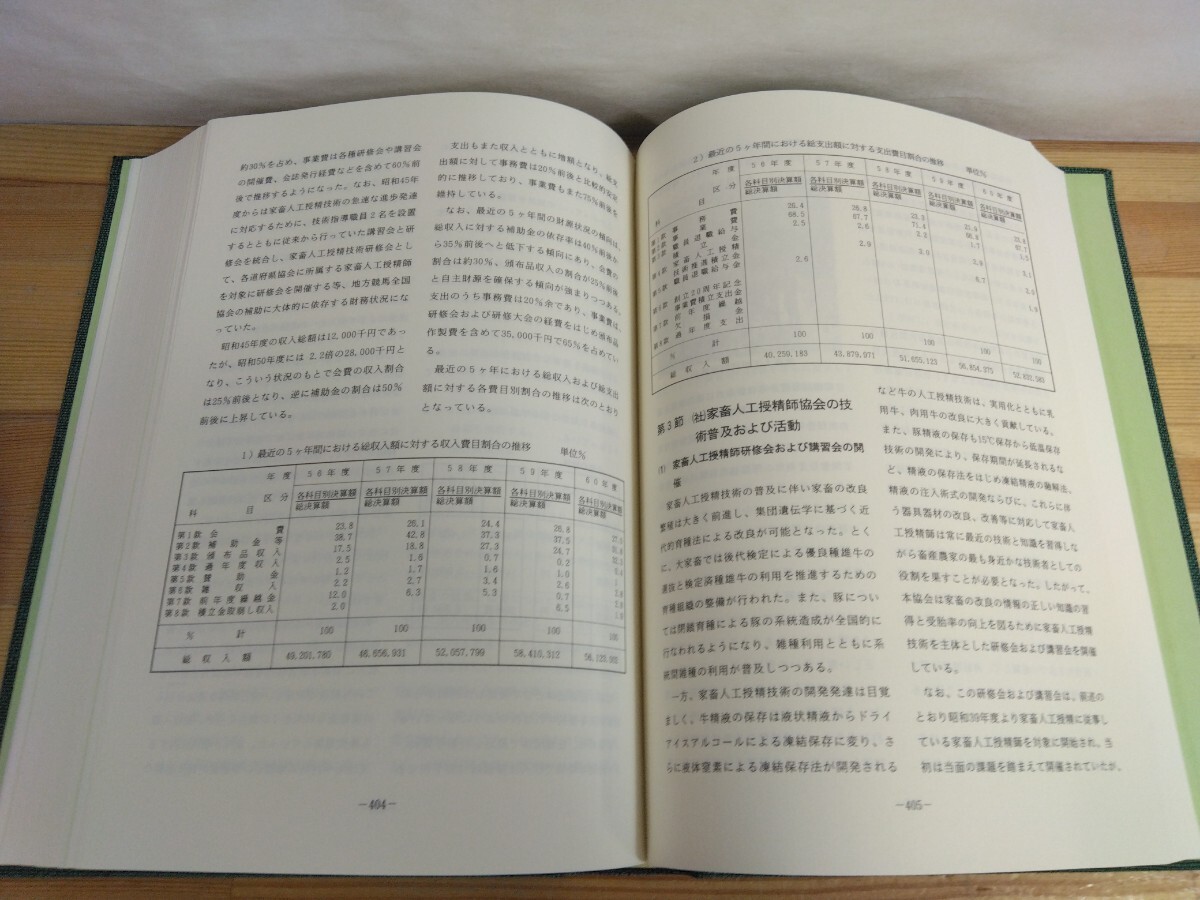 約30％を占め、事業費は各種研修会や講習会
の開催費、会誌発行経費などを含めて60％前
後で推移するようになった。なお、昭和45年
度からは家畜人工授精技術の急速な進歩発達
に対応するために、技術指導職員2名を設置
するとともに従来から行っていた講習会と研
修会を統合し、家畜人工授精技術研修会とし
て、各道府県協会に所属する家畜人工授精師
を対象に研修会を開催する等、地方競馬全国
協会の補助に大体的に依存する財務状況にな
っていた。
昭和45年度の収入総額は12,000千円であっ
たが、昭和50年度には 2.2倍の28,000千円と
なり、こういう状況のもとで会費の収入割合
は25％前後となり、逆に補助金の割合は50％
前後に上昇している。
支出もまた収入とともに増額となり、総支
出額に対して事務費は20％前後と比較的安定
的に推移しており、事業費もまた75％前後を
維持している。
なお、最近の5ヶ年間の財源状況の傾向は、
総収入に対する補助金の依存率は40％前後か
ら35％前後へと低下する傾向にあり、会費の
割合は約30％、頒布品収入の割合が25％前後
と自主財源を確保する傾向が強まりつつある。
支出のうち事務費は20％余であり、事業費は、
研修会および研修大会の経費をはじめ頒布品
作製費を含めて35,000千円で65％を占めてい
る。
最近の5ヶ年における総収入および総支出
額に対する各費目別割合の推移は次のとおり
となっている。
1）最近の5ヶ年間における総収入額に対する収入費目割合の推移 単位％
年度 区分 科目 56年度 57年度 58年度 59年度 60年度
各科目別決算額 各科目別決算額 各科目別決算額 各科目別決算額 各科目別決算額
総決算額 総決算額 総決算額 総決算額 総決算額
第1款 会費 23.8 26.1 24.4 26.8
第2款 補助金等 38.7 42.8 37.3 37.5
第3款 頒布品収入 17.5 18.8 27.3 24.7
第4款 過年度収入 2.5 1.6 0.7 0.2
第5款 賛助金 1.3 1.7 1.6 1.0
第6款 雑収入 2.2 2.7 3.4 2.6
第7款 前年度繰越金 12.0 6.3 5.3 0.7
第8款 積立金取崩し収入 2.0 6.5
％計 100 100 100 100 100
総収入額 49,201,780 46,656,931 52,057,799 58,410,312
－404－
2）最近の5ヶ年間における総支出額に対する支出費目割合の推移
単位％
年度 区分 科目 56年度 57年度 58年度 59年度 60年度
各科目別決算額 各科目別決算額 各科目別決算額 各科目別決算額 各科目別決算額
総決算額 総決算額 総決算額 総決算額 総決算額
％計 100 100 100 100 100
総収入額 40,259,183 43,879,971 51,655,123
第3節 ㈳家畜人工授精師協会の技
術普及および活動
⑴ 家畜人工授精師研修会および講習会の開
催
家畜人工授精技術の普及に伴い家畜の改良
繁殖は大きく前進し、集団遺伝学に基づく近
代的育種法による改良が可能となった。とく
に、大家畜では後代検定による優良種雄牛の
選抜と検定済種雄牛の利用を推進するための
育種組織の整備が行われた。また、豚につい
ては閉鎖育種による豚の系統造成が全国的に
行なわれるようになり、雑種利用とともに系
統間雑種の利用が普及しつつある。
一方、家畜人工授精技術の開発発達は目覚
ましく、牛精液の保存は液状精液からドライ
アイスアルコールによる凍結保存に変り、さ
らに液体窒素による凍結保存法が開発される
など牛の人工授精技術は、実用化とともに乳
用牛、肉用牛の改良に大きく貢献している。
また、豚精液の保存も15℃保存から低温保存
技術の開発により、保存期間が延長されるな
ど、精液の保存法をはじめ凍結精液の融解法、
精液の注入術式の開発ならびに、これらに伴
う器具器材の改良、改善等に対応して家畜人
工授精師は常に最近の技術と知識を習得しな
がら畜産農家の最も身近かな技術者としての
役割を果すことが必要となった。したがって、
本協会は家畜の改良の情報の正しい知識の習
得と受胎率の向上を図るために家畜人工授精
技術を主体とした研修会および講習会を開催
している。
なお、この研修会および講習会は、前述の
とおり昭和39年度より家畜人工授精に従事し
ている家畜人工授精師を対象に開始され、当
初は当面の課題を踏まえて開催されていたが、
－405－